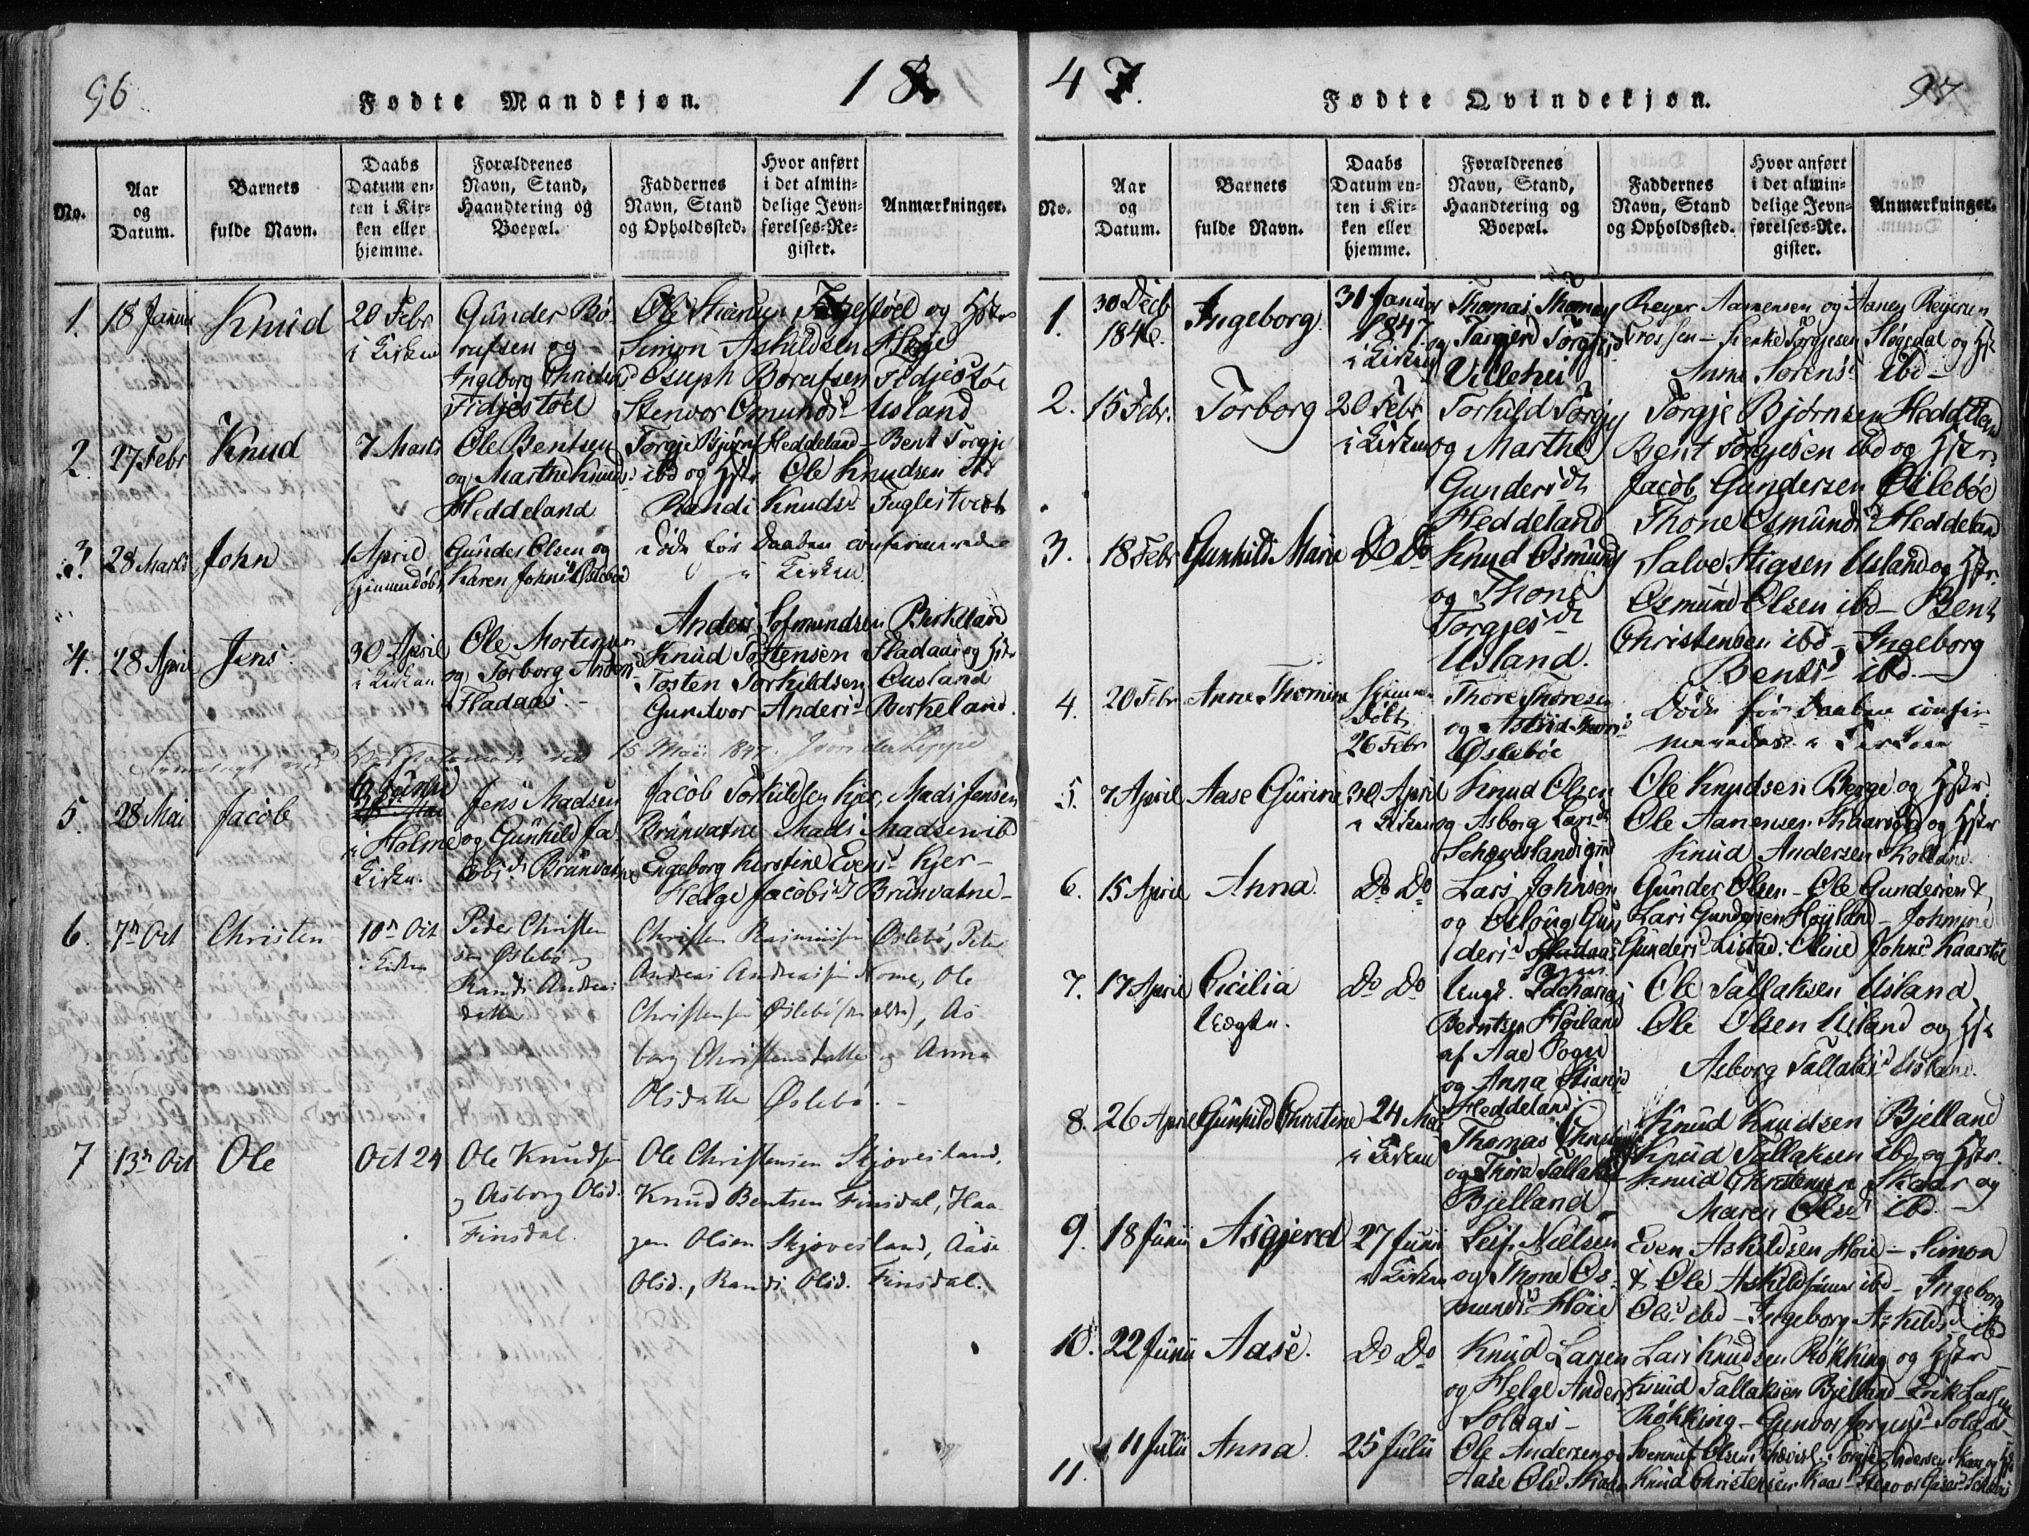 96
Fødte Mandkjøn.
18
No.
Aar
og
Datum.
Barnets
fulde Navn.
Daabs
Datum en-
ten i Kir-
ken eller
hjemme.
Forældrenes
Navn, Stand,
Haandtering og
Boepæl.
Faddernes
Navn, Stand
og Opholdssted.
Hvor anført
i det almin-
delige Jevn-
førelses-Re-
gister.
Anmærkninger.
1.
18 Januar
Knud
20 Febr
i Kirken
Gunder Bø-
rufsen og
Ingeborg Christens
Fidjestøel
Ole
og Hstr
Simon Askildsen Høie
Osuph Børufsen Fidjestøe
Stenvor Omundsd Usland
2
27 Febr
Knud
7 Marts
Ole Bentsen
og Marthe Knuds
Heddeland
Torgje Bjørns Heddeland - Bent Torgje
ibd og Hstr Ole Knudsen ibd
Randi Knudsd Fuglestvedt
3.
28 Marts
John
1 April
hjemmedøbt
Gunder Olsen og
Karen Johnsd Øslebøe
Døde før Daaben confirmerede
i Kirken
4.
28 April
Jens.
30 April
i Kirken
Ole Mortensen
og Torborg Andersd
Fladaas. -
Anders Sofmundsen Birkeland
Knud Tostensen Fladaas og Hstr
Tosten Torkildsen Ousland
Gundvor Andersd Birkeland.
15 Maii 1847.
5.
28 Mai
Jacob
6 Junii
i Holme
Kirke.
Jens Madsen
og Gunhild Ja-
cobsd Brunvatne
Jacob Torkildsen Kjer, Mads Jensen
Brunvatne Mads Madsen ibd
Engeborg Kerstine Evensd Kjer -
Helge Jacobsd Brunvatne -
6.
7n Oct
Christen
10n Oct
i Kirken
Peder Christen
sen Øslebø og
Randi Andreas
datter
Christen Rasmussen Øslebø, Peter
Andreas Andreassen Home, Ole
Christensen Øslebø (den ældre), As
borg Christensdatter og Anna
Olsdatter Øslebø. -
7
13n Oct
Ole
Oct 24
Ole Knudsen
og Asborg Olsd.
Finsdal.
Ole Christensen Skjøvesland,
Knud Bentsen Finsdal, Haa
gen Olsen Skjøvesland, Aase
Olsd., Randi Olsd. Finsdal.
47.
Fødte Qvindekjøn.
97
No.
Aar
og
Datum.
Barnets
fulde Navn.
Daabs
Datum en-
ten i Kir-
ken eller
hjemme.
Forældrenes
Navn, Stand,
Haandtering og
Boepæl.
Faddernes
Navn, Stand
og Opholdssted.
Hvor anført
i det almin-
delige Jevn-
førelses-Re-
gister.
Anmærkninger.
1.
30 Decb
1846.
Ingeborg
31 Januar
1847
i Kirken
Thomas Thomas
og Targierd Torgjusd
Villehei
Reyer Aanensen og Aanen Reyersen
Trossen - Kerke Torgjesen Høgedal og Hstr
Anne Sørensd ibd -
2.
15 Febr.
Torborg
20 Febr
i Kirken
Torkild Torgje
og Marthe
Gundersdt
Heddeland
Torgje Bjørnsen Heddeland
Bent Torgjesen ibd og Hstr.
Jacob Gundersen Øslebøe
Thone Osmundsd Heddeland
3.
18 Febr
Gunhild Marie
Do Do
Knud Osmunds
og Thone
Torgjesdt
Usland.
Salve Stigsen Usland og Hstr.
Osmund Olsen ibd - Bent
Christensen ibd - Ingeborg
Bentsd ibd. -
4.
20 Febr
Anne Thomine
Hjemme
døbt
26 Febr
Thore Thoresen
og Astrid Thorsd
Øslebøe
Døde før Daaben confir-
meredes i Kirken
5.
7 April
Aase Gurine
30 April
i Kirken
Knud Olsen
og Asborg Larsdt
Schøveslandsgrd
Ole Knudsen Berge og Hstr.
Ole Aanensen Kaarstøl og Hstr
Knud Andersen Kolland
6.
15 April
Anna.
Do Do
Lars Johnsen
og Oeloug Gun
dersd Fladaas
Gunder Olsen - Ole Gundersen &
Lars Gundersen Høyland - Johnine
Gundersd Listad. Oline Johnsd Kaarstøl
7.
17 April
Cicilia
Uægte.
Do Do
Ungk. Zacharias
Berntsen Høiland
af Aae Sogn
og Anna Stiansd
Heddeland
Ole Tallaksen Usland
Ole Olsen Usland og Hstr
Asborg Tallaksd Usland.
8.
26 April
Gunhild Christine
24 Mai
i Kirken
Thomas Christ
og Thora Tallaksd
Bjelland -
Knud Knudsen Bjelland
Knud Tallaksen ibd og Hstr.
Knud Christensen Skaar og
Maren Olsd ibd -
9.
18 Junii
Asgjerd
27 Junii
i Kirken
Leif Nielsen
og Thone Os-
mundsd Høie
Even Askildsen Høie - Simon
& Ole Askildsønner ibd - Ingeborg
Olsd ibd - Ingeborg Askildsd ibd
10.
22 Junii
Aase.
Do Do
Knud Larsen
og Helge Andersd
Solaas -
Lars Knudsen Røkking og Hstr -
Knud Tallaksen Bjelland - Erik Larsen
Røkking - Gunvor Jørgensd Solaas -
11.
11 Julii
Anna.
25 Julii
Ole Andersen og
Aase Olsd Skaar
Svennuf Olsen Torgje Andersen Kaas og Hstr
Knud Christensen Kaas -